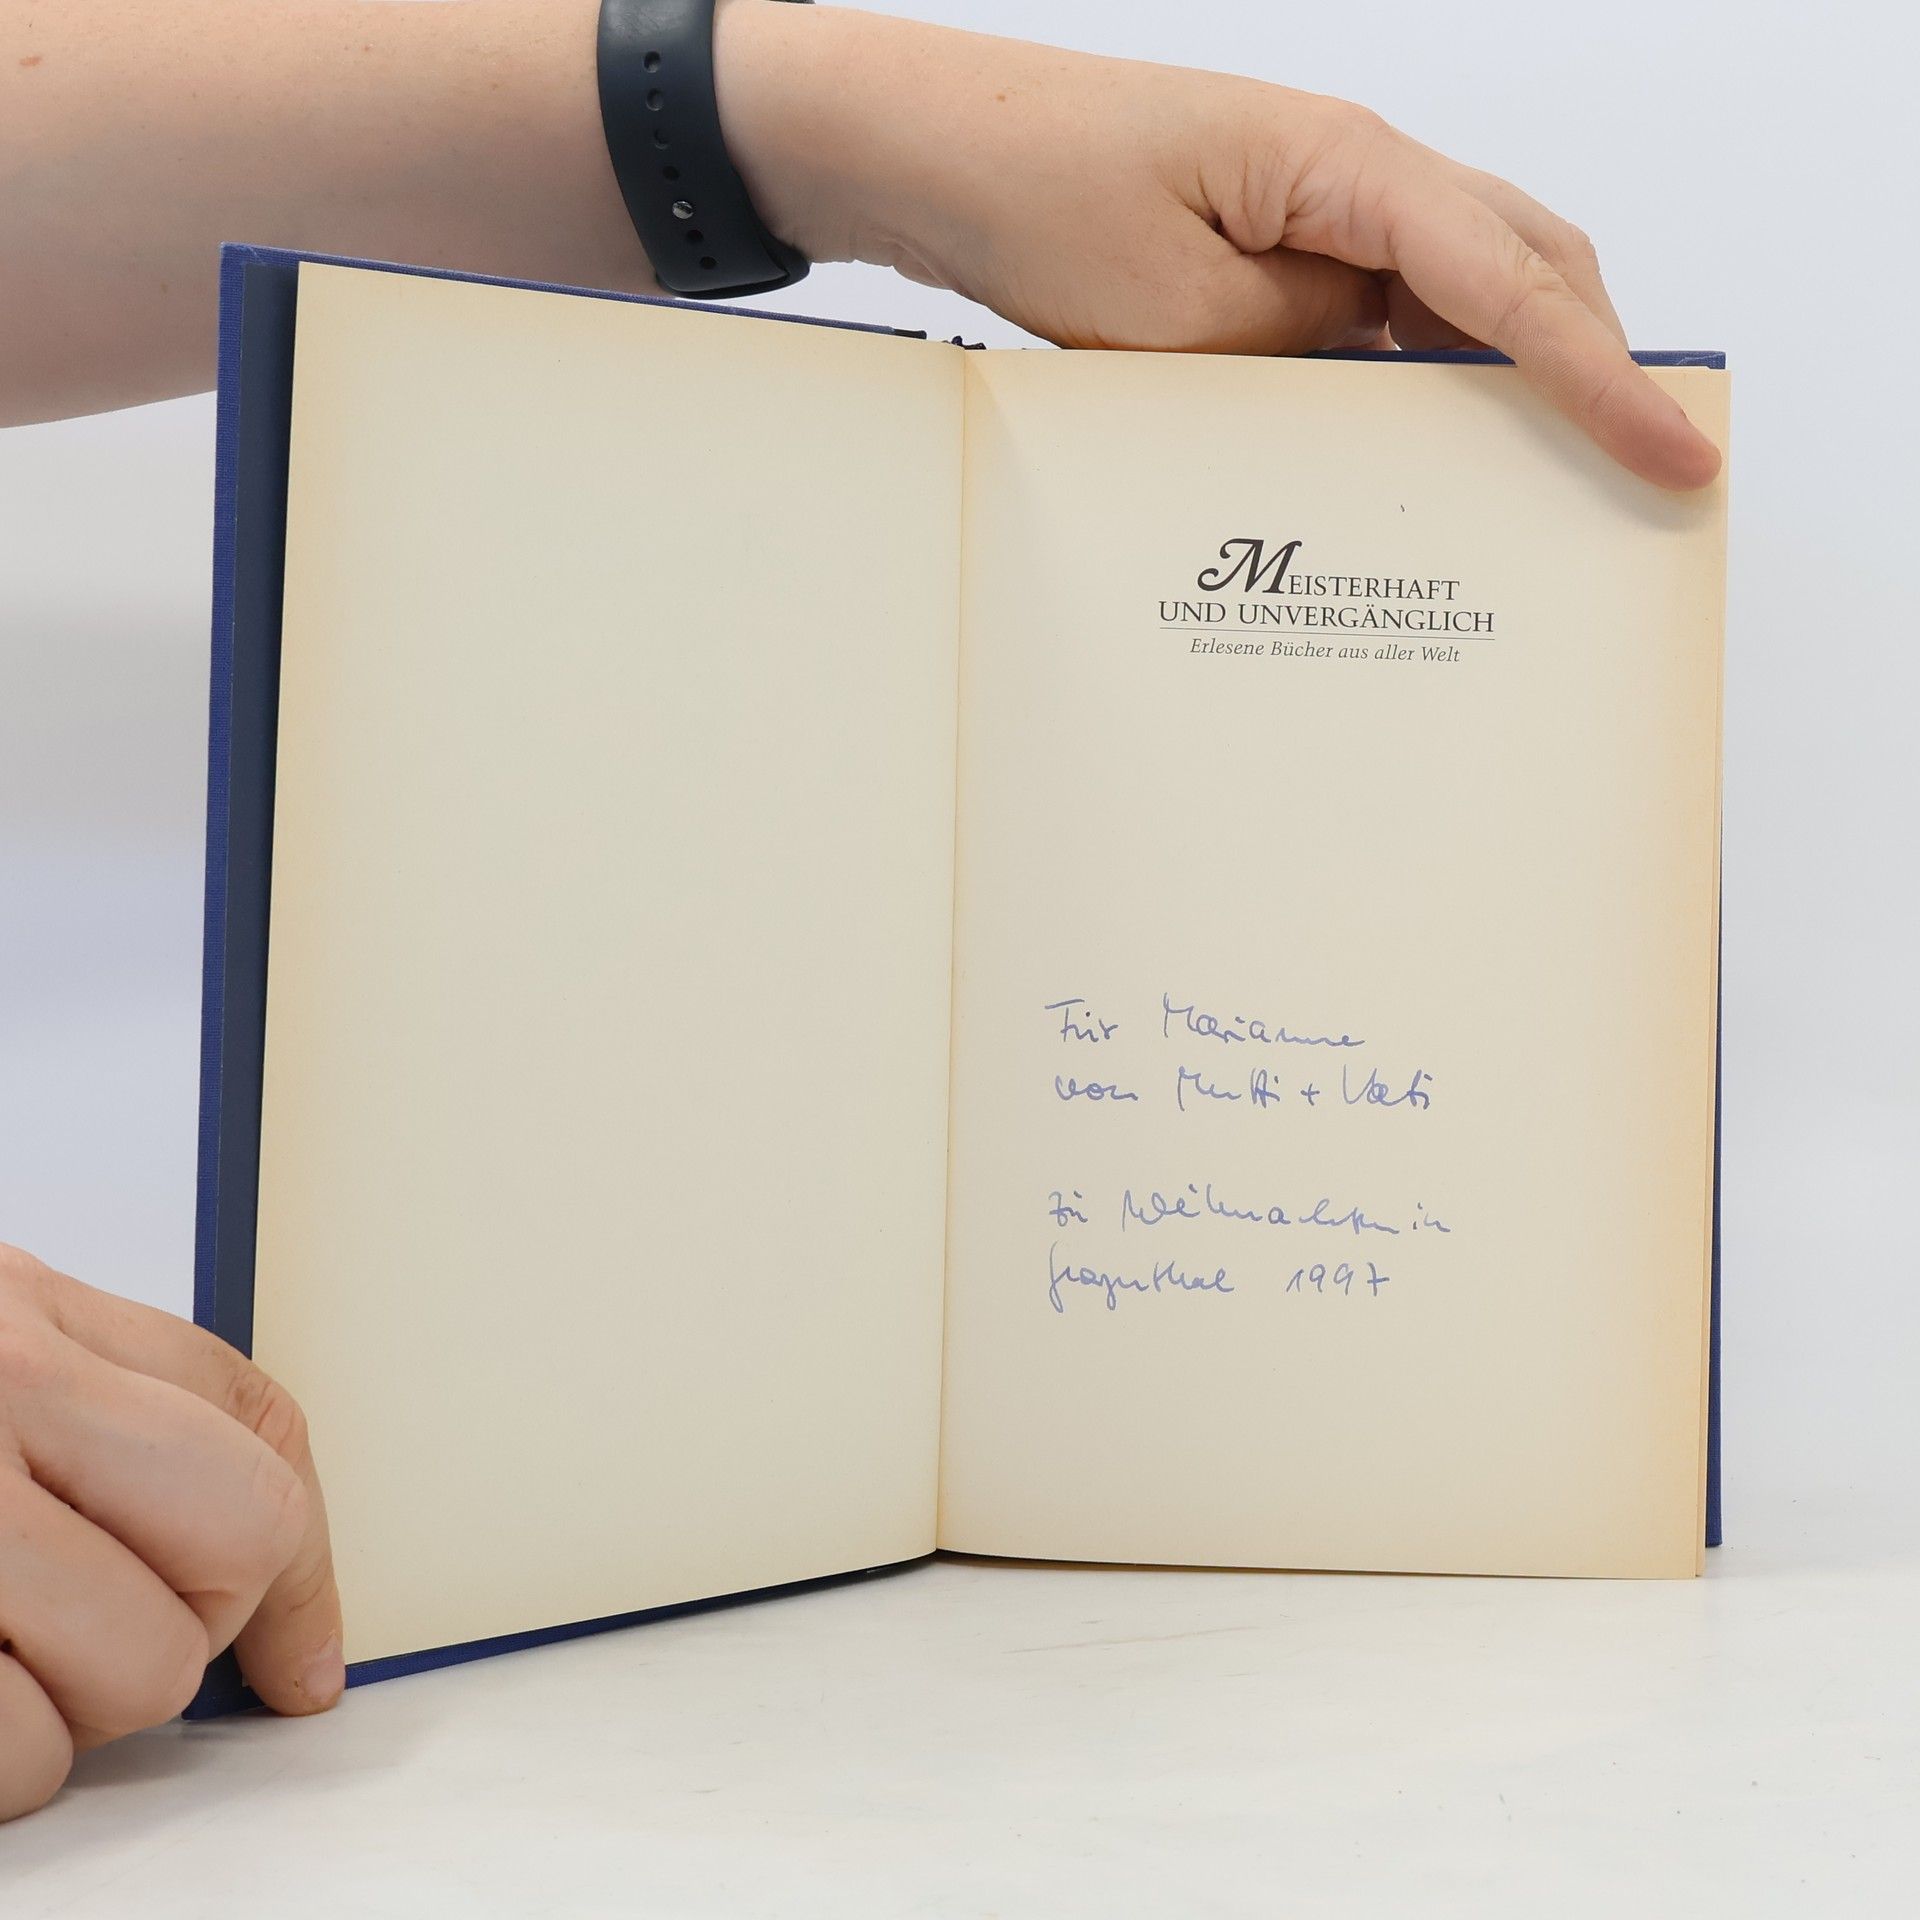 MEISTERHAFT
UND UNVERGÄNGLICH
Erlesene Bücher aus aller Welt
Für Marianne
von Mutti + Vati
Zu Weihnachten in
1997